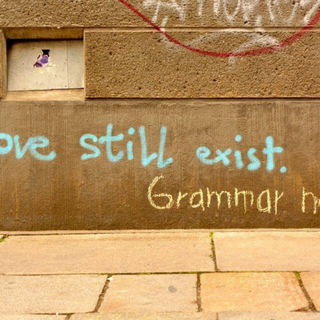 ove still exist.
Grammar